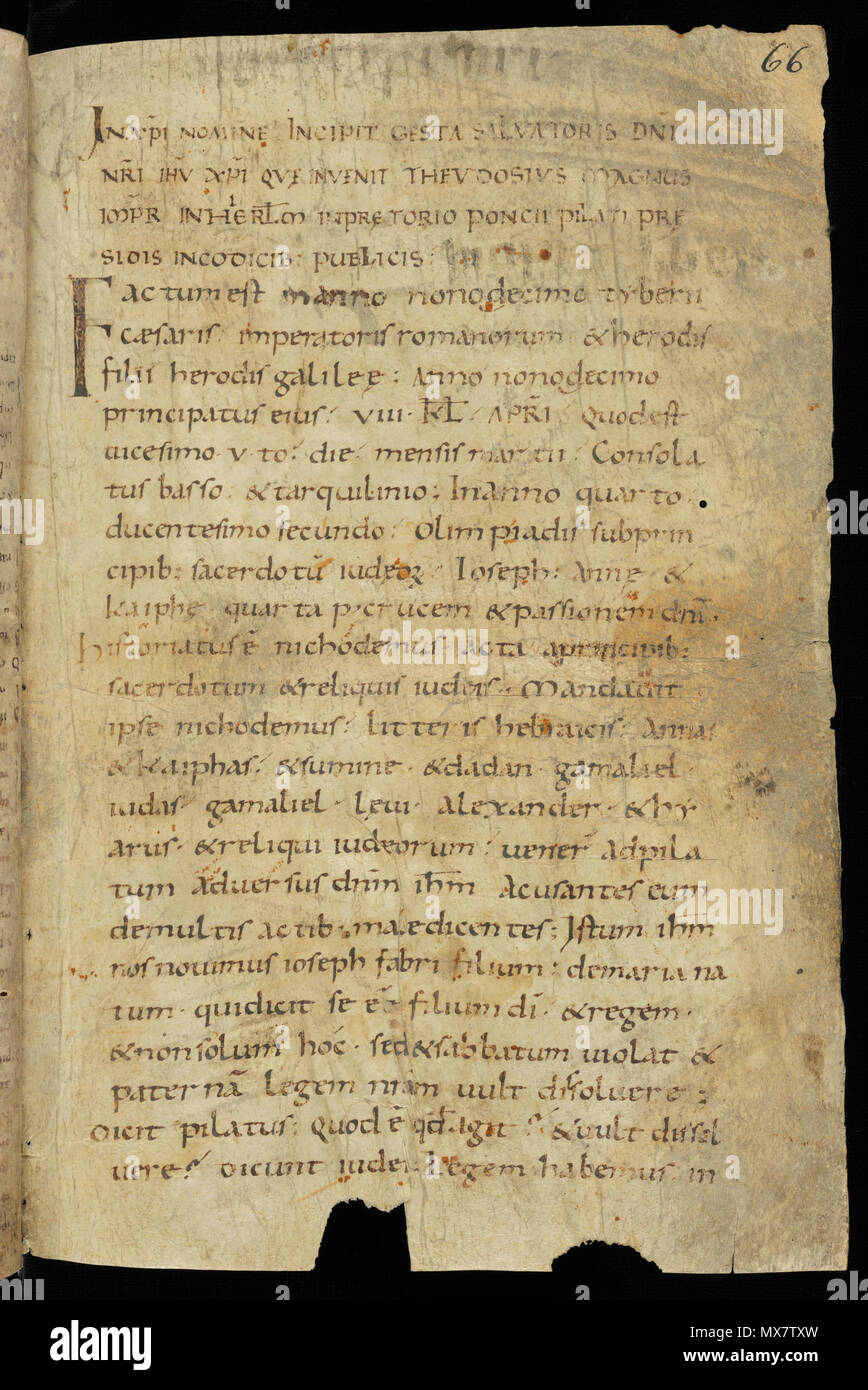 66
IN XPI NOMINE INCIPIT GESTA SALVATORIS DNI
NRI IHU XPI QUE INVENIT THEUDOSIUS MAGNUS
IMPR IN HIERLM IN PRETORIO PONCII PILATI PRE
SIDIS IN CODICIB: PUBLICIS:
Factum est in anno nonodecimo tyberii
cæsaris. imperatoris romanorum & herodis
filii herodis galileę: Anno nonodecimo
principatus eius. VIII. KL. APRI. quod est
uicesimo.v.to. die. mensis martii. Consola
tus basso. & tarquilinio; In anno quarto.
ducentesimo secundo. Olimpiadis sub prin
cipib: sacerdotū iudeoꝝ. Ioseph. Annę &
Kaiphę quarta p̱ crucem & passionem dnī.
historiatus ē nichodemus. acta a principib:
sacerdotum & reliquis iudeis. Mandauit
ipse nichodemus. litteris hebraicis. Annas
& Kaiphas. & summe. & dadan. gamaliel.
iudas. gamaliel. leui. Alexander. & hy
arus. & reliqui iudeorum. uener̄ ad pila
tum aduersus dnm̄ ihm̄ Acusantes eum
de multis actib: maledicentes; Istum ihm̄
nos nouimus ioseph fabri filium. de maria na
tum. qui dicit se ēē filium dī. & regem.
& non solum hoc. sed & sabbatum uiolat &
paternā legem nrām uult dissoluere;
Dicit pilatus. quod ē qd̄ agit & uult dissol
uere? Dicunt iudei. Legem habemus. in
alamy
Image ID: MX7TXW
www.alamy.com